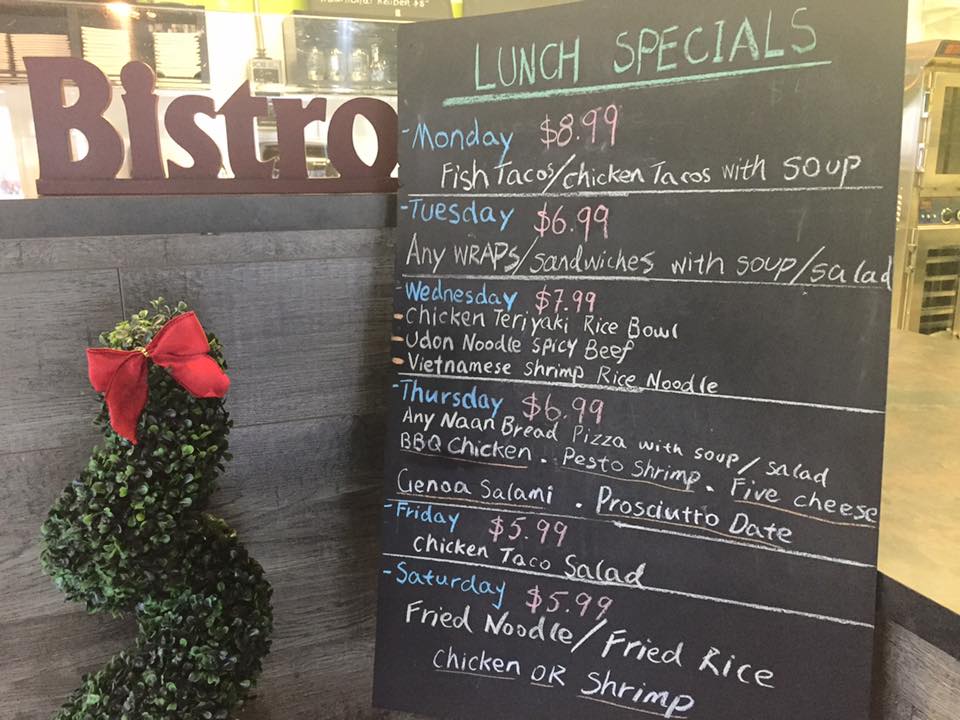 Bistro
LUNCH SPECIALS
-Monday $8.99
Fish Tacos/chicken Tacos with soup
-Tuesday $6.99
Any WRAPS/sandwiches with soup/salad
-Wednesday $7.99
-Chicken Teriyaki Rice Bowl
-Udon Noodle Spicy Beef
-Vietnamese Shrimp Rice Noodle
-Thursday $6.99
Any Naan Bread Pizza with soup/salad
BBQ Chicken . Pesto Shrimp . Five cheese
Genoa Salami . Prosciutto Date
-Friday $5.99
Chicken Taco Salad
-Saturday $5.99
Fried Noodle/Fried Rice
Chicken OR Shrimp